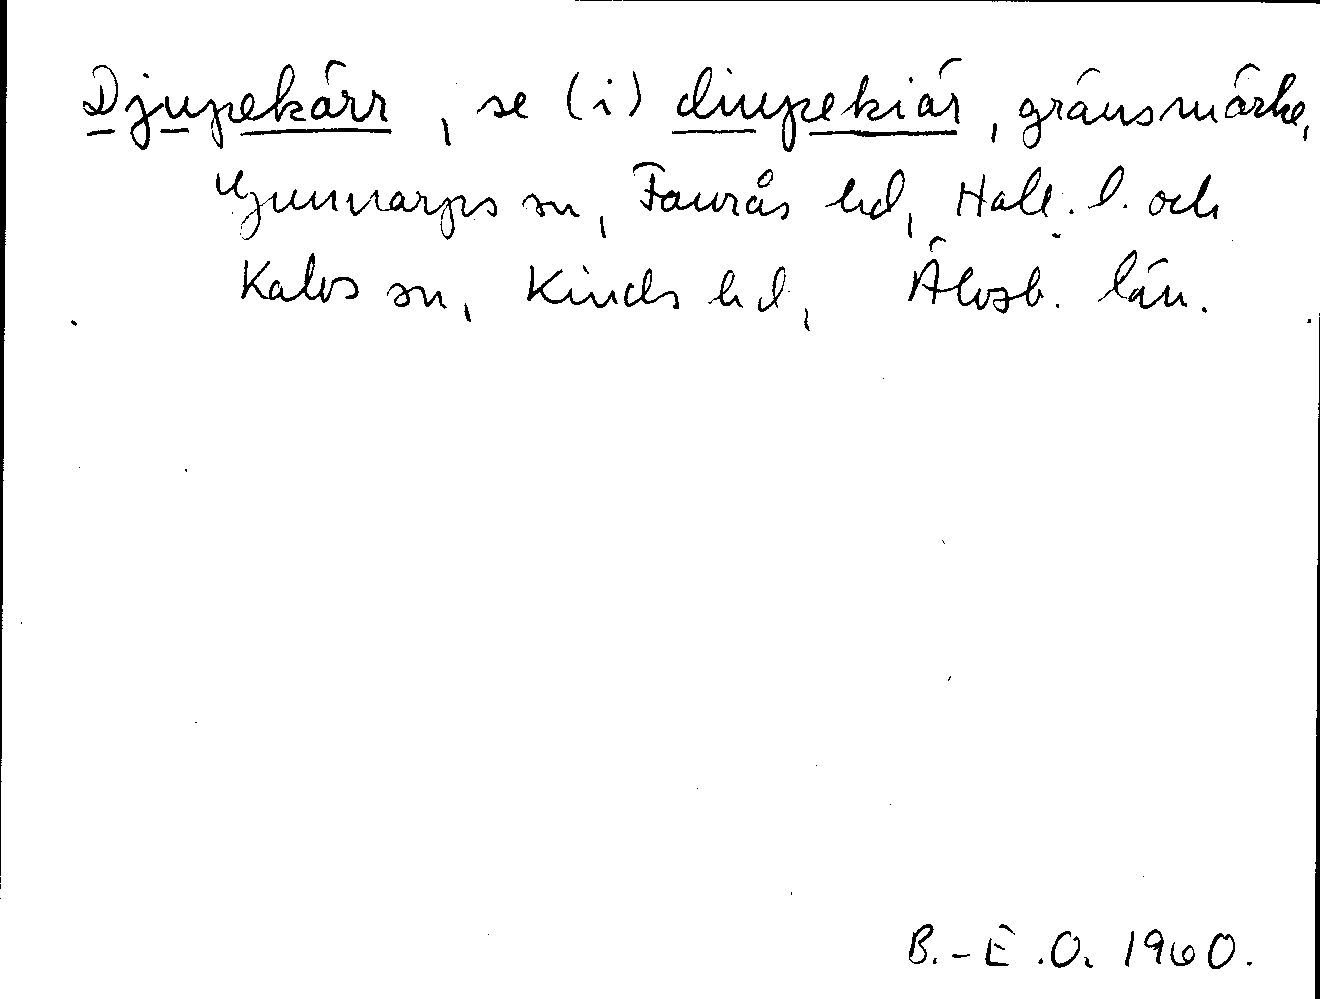 Djupekärr, se (i) diupekiär, gränsmärke,
Gunnarps sn, Faurås hd, Hall. l. och
Kalvs sn, Kinds hd, Älvsb. län.
B.-E.O. 1960.